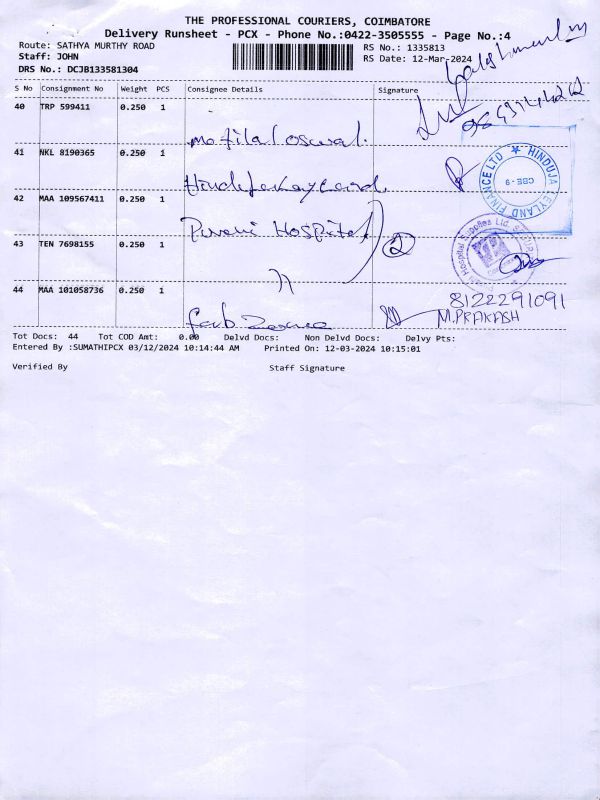 THE PROFESSIONAL COURIERS, COIMBATORE
Delivery Runsheet - PCX - Phone No.:0422-3505555 - Page No.:4
Route: SATHYA MURTHY ROAD RS No.: 1335813
Staff: JOHN RS Date: 12-Mar-2024
DRS No.: DCJB133581304
S No Consignment No Weight PCS Consignee Details Signature
40 TRP 599411 0.250 1
Motilal oswal.
41 NKL 8190365 0.250 1
HINDUJA LEYLAND FINANCE LTD CBE-9
42 MAA 109567411 0.250 1
Hospital 2
43 TEN 7698155 0.250 1
Hospital Supplies
44 MAA 101058736 0.250 1
8122291091
M.PRAKASH
Tot Docs: 44 Tot COD Amt: 0.00 Delvd Docs: Non Delvd Docs: Delvy Pts:
Entered By :SUMATHIPCX 03/12/2024 10:14:44 AM Printed On: 12-03-2024 10:15:01
Verified By Staff Signature